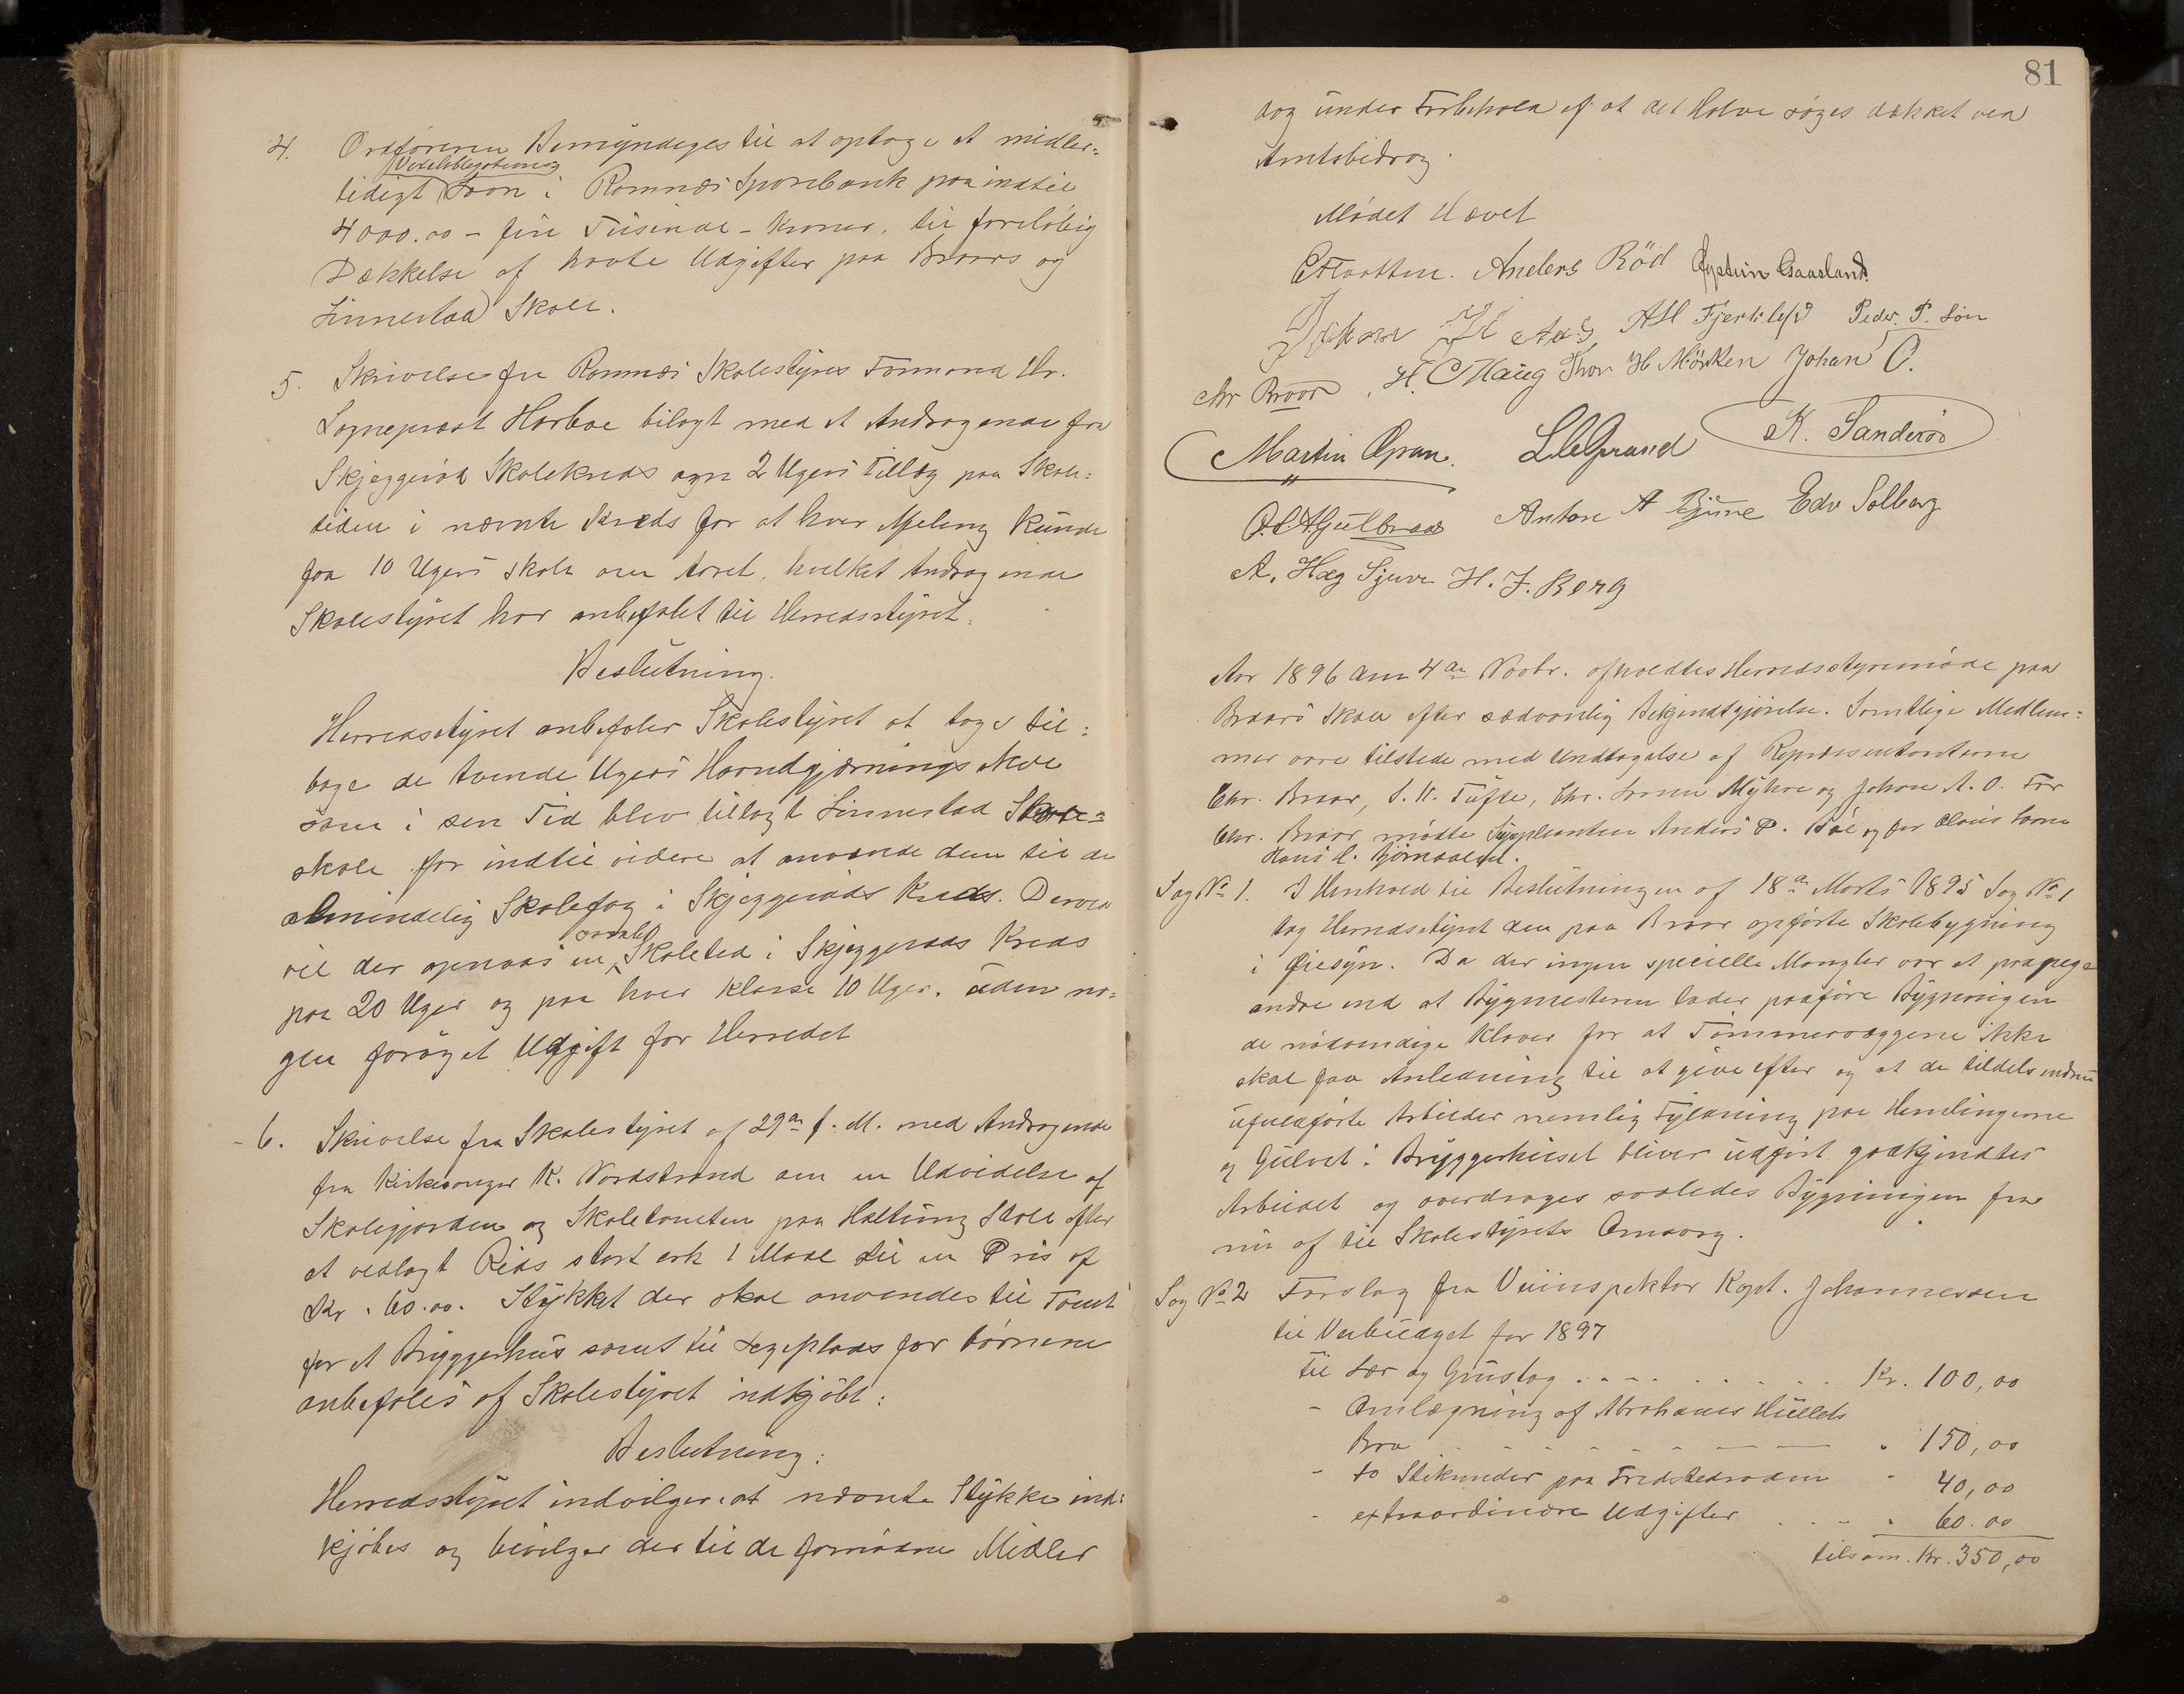 4. Ordføreren Bemyndiges til at optage et midler=
Vexelobligations
tidigt Laan i Ramnæs Sparebank paa indtil
4000.00 – fire Tusinde – Kroner, til foreløbig
Dækkelse af havte Udgifter paa Braars og
Linnestad Skole.
5. Skrivelse fra Ramnæs Skolestyres Formand Hr.
Sogneprest Harboe bilagt med et Andragende fra
Skjeggerød Skolekreds om 2 Ugers Tillæg paa Skole=
tiden i nævnte Kreds for at hver Afdeling kunde
faa 10 Ugers skole om Aaret, hvilket Andragende
Skolestyret har anbefalet til Herredsstyret.
Beslutning.
Herredsstyret anbefaler Skolestyret at tage til=
bage de tvende Ugers Haandgjærnings
som i sen Tid blev tillagt Linnestad
skole for indtil videre at anvende dem til de
almindelig Skolefag i Skjeggerøds Kreds. Derved
vil der opnaaes en Skoletid i Skjeggerøds Kreds
paa 20 Uger og paa hver Klasse 10 Uger, uden no=
gen forøget Udgift for Herredet
- 6. Skrivelse fra Skolestyret af 29de f. M. med Andragende
fra Kirkesanger K. Nordstrand om en Udvidelse af
Skolegjorden og Skoletomten paa Haltung Skole efter
et vedlagt Rids stort ca 1 Maal til en Pris af
Kr. 60.00. Stykket der skal anvendes til Tomt
for et Bryggerhus samt til Legeplads for børnene
anbefales af Skolestyret indkjøbt:
Beslutning:
Herredsstyret indvilger i at nævnte Stykke ind=
kjøbes og bevilger der til de fornødne Midler
81
dog under Forbehold af at det Halve søges dækket ved
Amtsbidrag.
Mødet Hævet
Anders Röd Øystein Gaasland
Peder P. Lön
Chr Braar, H. C Haug Thor H Mörken Johan O.
Martin Gran. K. Sanderöö
Anton A Bjune Edv Solberg
A. Hæg Sjuve H. J. Berg
Aar 1896 den 4de Novbr. afholdtes Herredsstyremøde paa
Braars Skole efter sædvanlig Bekjendtgjørelse. Samtlige Medlem=
mer vare tilstede med Undtagelse af Repræsentanterne
Chr. Braar, S. H. Tufte, Chr. Myhre og Johan A. O. For
Chr. Braar mødte Suppleanten Anders P. og for
Hans C. Bjørndalen.
Sag No 1. I Henhold til Beslutningen af 18de Marts 1895 Sag No 1
tog Herredsstyret den paa Braar opførte Skolebygning
i Øiesyn. Da der ingen specielle Mangler var at paapege
andre end at Bygmesteren lader paaføre Bygningen
de nødvendige Klaver for at Tømmervæggene ikke
skal faa Anledning til at give efter og at de tildels endnu
ufuldførte Arbeider nemlig Fyldning paa Hemlingerne
og Gulvet i Bryggerhuset bliver udført godkjendtes
Arbeidet og overdrages saaledes Bygningen fra
nu af til Skolestyrets Omsorg.
Sag No 2 Forslag fra Veiinspektør Kapt. Johannessen
til Veibudget for 1897
til Ler og Grustag . . . . Kr. 100,00
- Omlægning af Abrahams Hullets
Bro - - - - " 150,00
- to Stikrender paa Fredstadraden - 40,00
- extraordinære Udgifter . . - " 60.00
tilsam. Kr. 350,00